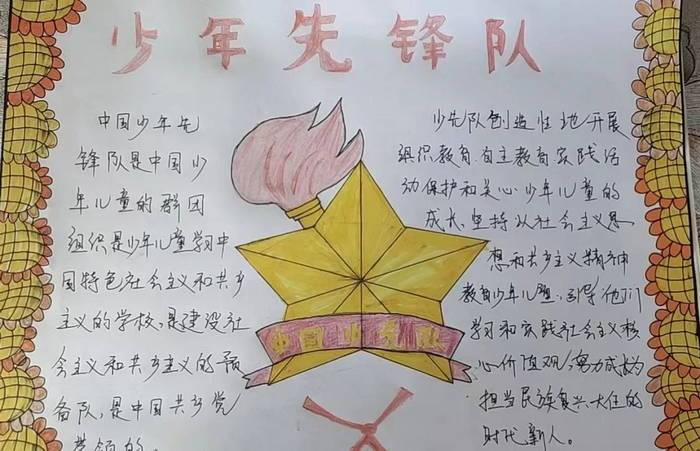 少年先锋队
中国少年先
锋队是中国少
年儿童的群团
组织是少年儿童学习中
国特色社会主义和共产
主义的学校,是建设社
会主义和共产主义的预
备队,是中国共产党
少先队创造性地开展
组织教育、自主教育、实践活
动保护和关心少年儿童的
成长,坚持以社会主义思
想和共产主义精神
教育少年儿童,引导他们
学习和实践社会主义核
心价值观,努力成长为
担当民族复兴大任的
时代新人。
中国少先队